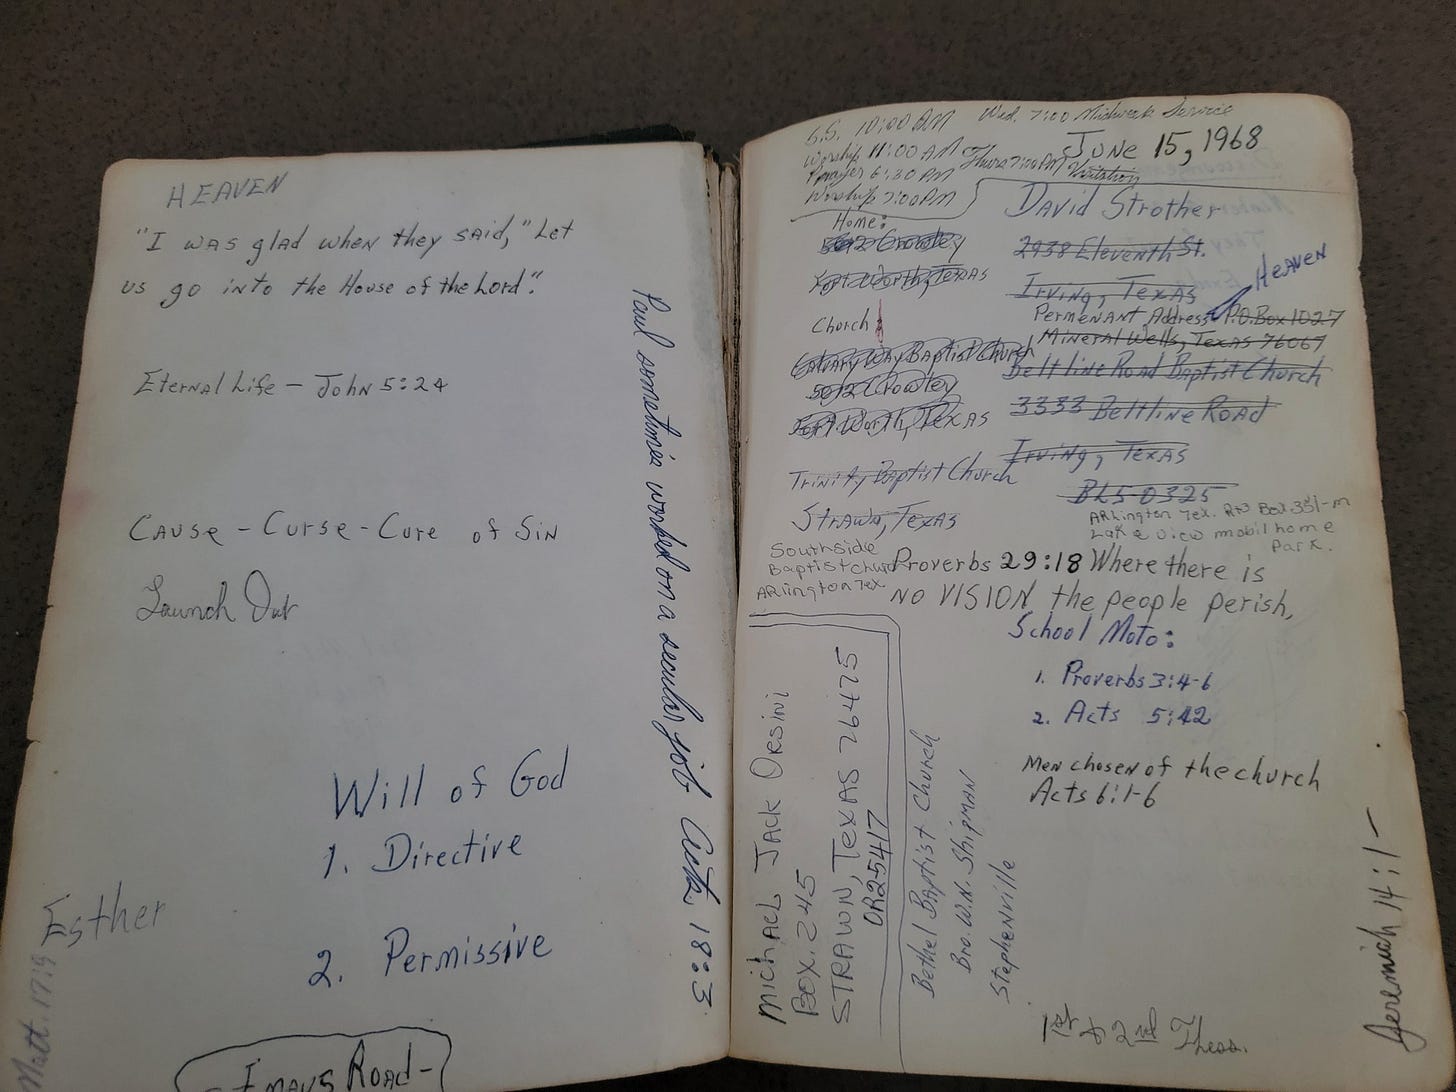 HEAVEN
"I was glad when they said," Let
us go into the House of the Lord".
Eternal Life - John 5:24
Cause - Curse - Cure of Sin
Launch Out
Will of God
1. Directive
2. Permissive
Esther
Matt. 17:9
Emaus Road-
Paul sometimes worked on a secular job Acts 18:3
S.S. 10:00 AM Wed. 7:00 Midweek Service
Worship 11:00 AM Thurs 7:00 PM Visitation
Prayer 6:30 AM
Worship 7:00 PM
June 15, 1968
David Strother
2938 Eleventh St.
Irving, Texas
HEAVEN
Permenant Address P.O. Box 1027
Mineral Wells, Texas 76067
Beltline Road Baptist Church
3333 Beltline Road
Irving, Texas
BL5-0325
Arlington Tex. Box 351-M
Lake View mobil home
Park.
Home:
5612 Crowley
Fort Worth, Texas
Church:
Calvary Way Baptist Church
5612 Crowley
Fort Worth, Texas
Trinity Baptist Church
Strawn, Texas
Southside
Baptist Church
Arlington Tex
Proverbs 29:18 Where there is
NO VISION the people perish,
School Moto:
1. Proverbs 3:4-6
2. Acts 5:42
Men chosen of the church
Acts 6:1-6
Michael Jack Orsini
Box. 245
Strawn, Texas 76475
OR25417
Bethel Baptist Church
Bro. W.N. Shipman
Stephenville
1st & 2nd Thess.
Jeremiah 14:1-